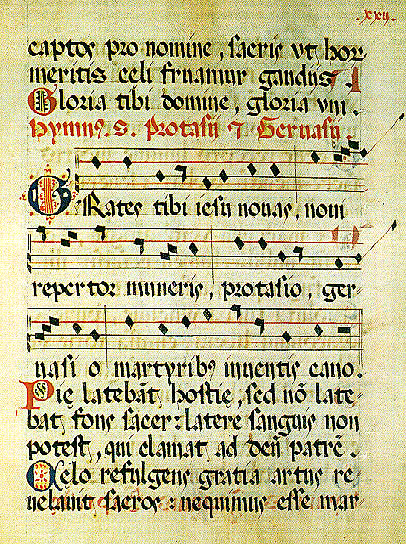 xxij.
captos pro nomine, sacris vt hor
meritis celi fruamur gaudijs.
Gloria tibi domine, gloria vni
Hymnꝰ. S. Protasij ⁊ Geruasij.
GRates tibi iesu nouas, noui
repertor muneris, protasio, ger
uasio martyribꝰ inuentis cano.
Pie latebāt hostie, sed nō late-
bat fons sacer: latere sanguis non
potest, qui clamat ad deū patrē.
Celo refulgens gratia artus re
uelauit sacros: nequimus esse mar-